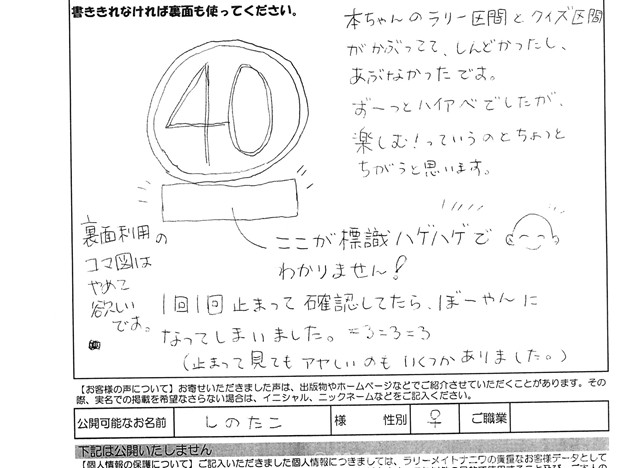 書ききれなければ裏面も使ってください。
本ちゃんのラリー区間とクイズ区間
がかぶってて、しんどかったし、
あぶなかったです。
ずーっとハイアベでしたが、
楽しむ！っていうのとちょっと
ちがうと思います。
40
ここが標識ハゲハゲで
わかりません！
裏面利用の
コマ図は
やめて
欲しい
です。
1回1回止まって確認してたら、ぼーやんに
なってしまいました。=3=3=3
(止まって見てもアヤしいのもいくつかありました。)
【お客様の声について】お寄せいただきました声は、出版物やホームページなどでご紹介させていただくことがあります。その
際、実名での掲載を希望なさらない場合は、イニシャル、ニックネームなどをご記入ください。
公開可能なお名前 しのたこ 様 性別 ♀ ご職業
下記は公開いたしません
【個人情報の保護について】ご記入いただきました個人情報につきましては、ラリーメイトナニワの貴重なお客様データとして